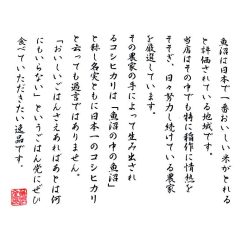 魚沼は日本で一番おいしい米がとれる
と評価されている地域です。
当店はその中でも特に稲作に情熱を
そそぎ、日々努力し続けている農家
を厳選しています。
その農家の手によって生み出され
るコシヒカリは「魚沼の中の魚沼」
と称し名実ともに日本一のコシヒカリ
と云っても過言ではありません。
「おいしいごはんさえあればあとは何
にもいらない」というごはん党にぜひ
食べていただきたい逸品です。